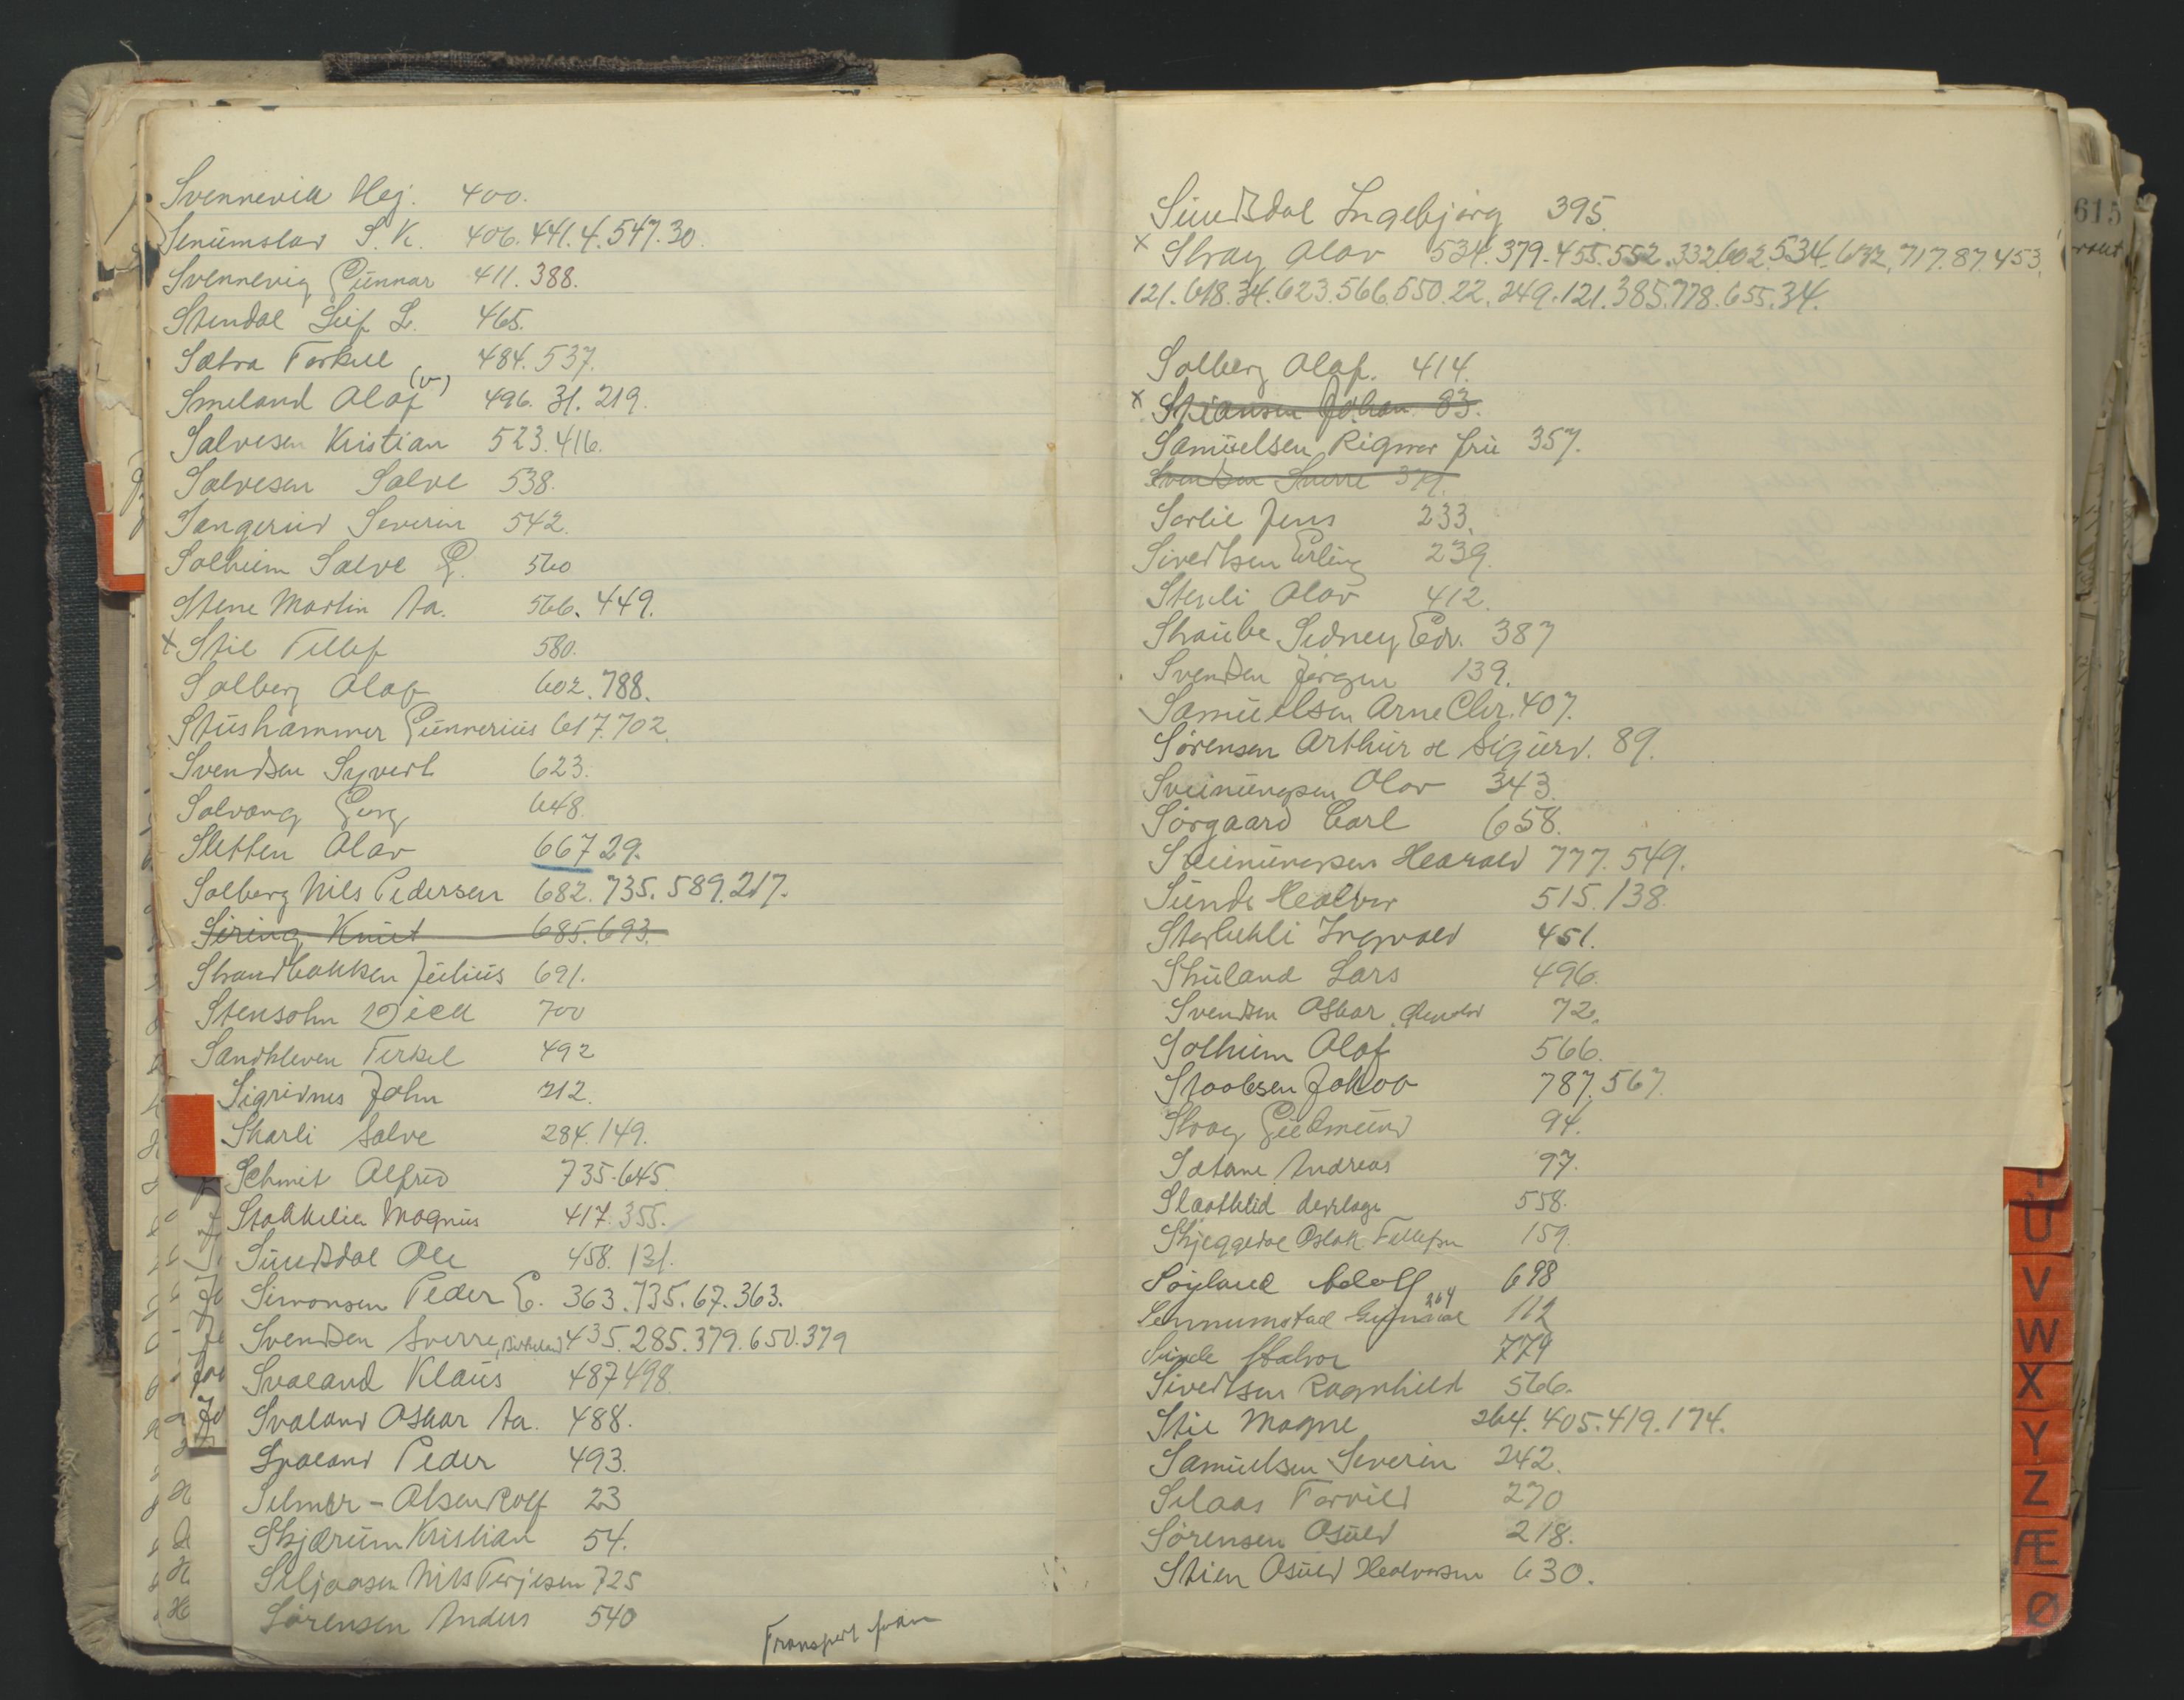 Svennevik Hej. 400.
Senumstav S. K. 406.441.4.547.30.
Svennevig Gunnar 411.388.
Stendal Leif L. 465.
Sætra Torkel 484.537.
Smeland Olaf (v) 496.31.219.
Salvesen Kristian 523.416.
Salvesen Salve 538.
Sangerud Severin 542.
Solheim Salve G. 560
Stene Martin Aa. 566.449.
x Stie Tellef 580.
Solberg Olaf 602.788.
Stushammer Gunnerius 617.702.
Svendsen Syvert 623.
Solvang Georg 648
Sletten Olav 667 29.
Solberg Nils Pedersen 682.735.589.217.
Siring Knut 685.693.
Strandbakken Julius 691.
Stensohn Dick 700
Sandkleven Terkel 492
Sigridnes John 212.
Skarli Salve 284.149.
Schmit Alfred 735.645.
Stokkelien Magnus 417.355.
Sundsdal Ole 458.121.
Simonsen Peder E. 363.735.67.363.
Svendsen Sverre, Birkeland 435.285.379.650.379
Svaland Klaus 487 498.
Svaland Oskar Aa. 488.
Svaland Peder 493.
Selmer-Olsen Rolf 23
Skjærum Kristian 54.
Seljaasen Nils Terjesen 725
Sørensen Anders 540
Transport fram
Sundsdal Ingebjørg 395.
x Stray Olav 534.379.455.552.332.602.534.672.717.87.453.
121.618.34.623.566.550.22.249.121.385.778.655.34.
Solberg Olaf. 414.
x Stiansen Johan 83.
Samuelsen Rigmor fru 357.
Svendsen Sverre 379.
Sorlie Jens 233.
Sivertsen Erling 239.
Stenli Olav 412.
Straube Sidney Edv. 387
Svendsen Jørgen 139.
Samuelsen Arne Chr. 407.
Sørensen Arthur & Sigurd. 89.
Sveinungsen Olav 343.
Sørgaard Carl 658.
Sveinungsen Harald 777.549.
Sunde Halvor 515.138.
Ingvald 451.
Skuland Lars 496.
Svendsen Oskar 72.
Solheim Olaf 566.
Jakob 787.567.
Stray Gudmund 94.
Sætane Andreas 97.
558.
Skjeggedal Aslak Tellefsen 159.
Søyland Adolf 698
Sennumstad 264 112
Sinde Halvor 779
Sivertsen Ragnhild 566.
Stie Magne 264.405.419.174.
Samuelsen Severin 242.
Selaas Torvild 270
Sørensen Osuld 218.
Stien Osuld Halvorsen 630.
615
U
V
W
X
Y
Z
Æ
Ø